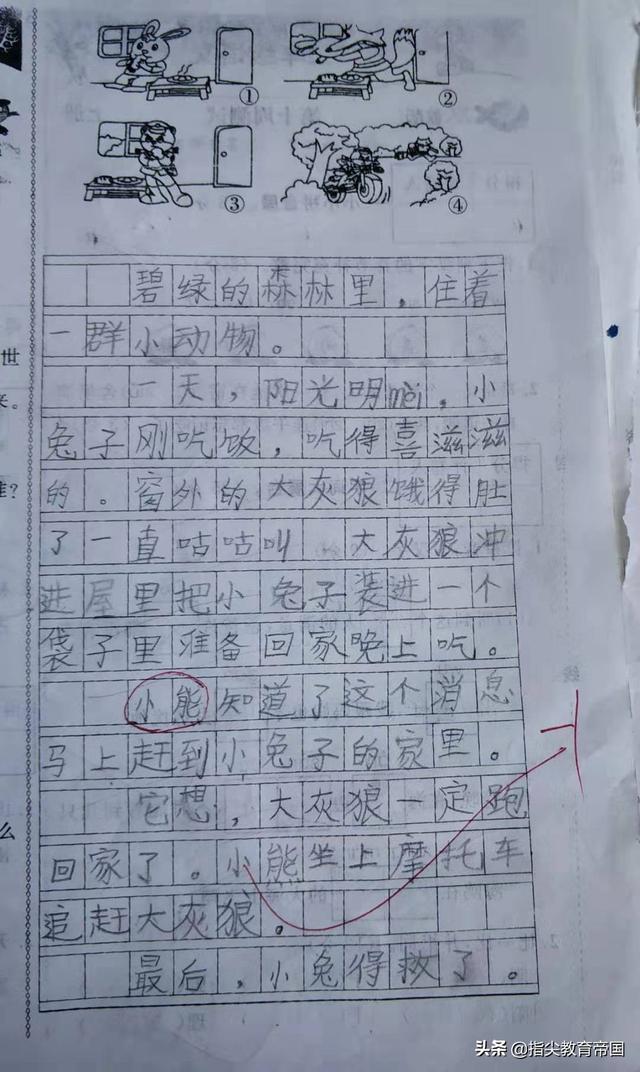 ①
②
③
④
碧绿的森林里，住着
一群小动物。
一天，阳光明mèi，小
兔子刚吃饭，吃得喜滋滋
的。窗外的大灰狼饿得肚
了一直咕咕叫 大灰狼冲
进屋里把小兔子装进一个
袋子里准备回家晚上吃。
小能知道了这个消息
马上赶到小兔子的家里。
它想，大灰狼一定跑
回家了。小能坐上摩托车
追赶大灰狼。
最后，小兔得救了。
世
来。
?
么
头条 @指尖教育帝国